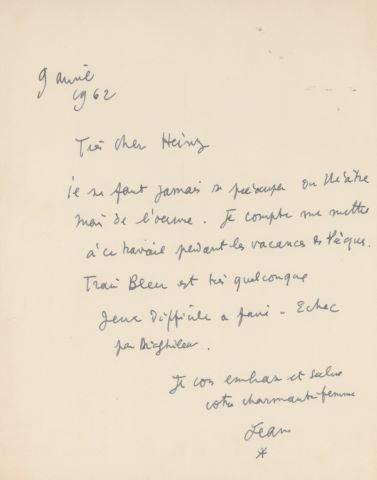 9 avril
1962
Très cher Heinz
ne faut jamais se préoccuper du théâtre
mais de l'œuvre. Je compte me mettre
à ce travail pendant les vacances de Pâques.
Train Bleu est très quelconque
Jeux difficile a Paris - Echec
par Diaghilew.
Je vous embrasse et salue
votre charmante femme
Jean
*